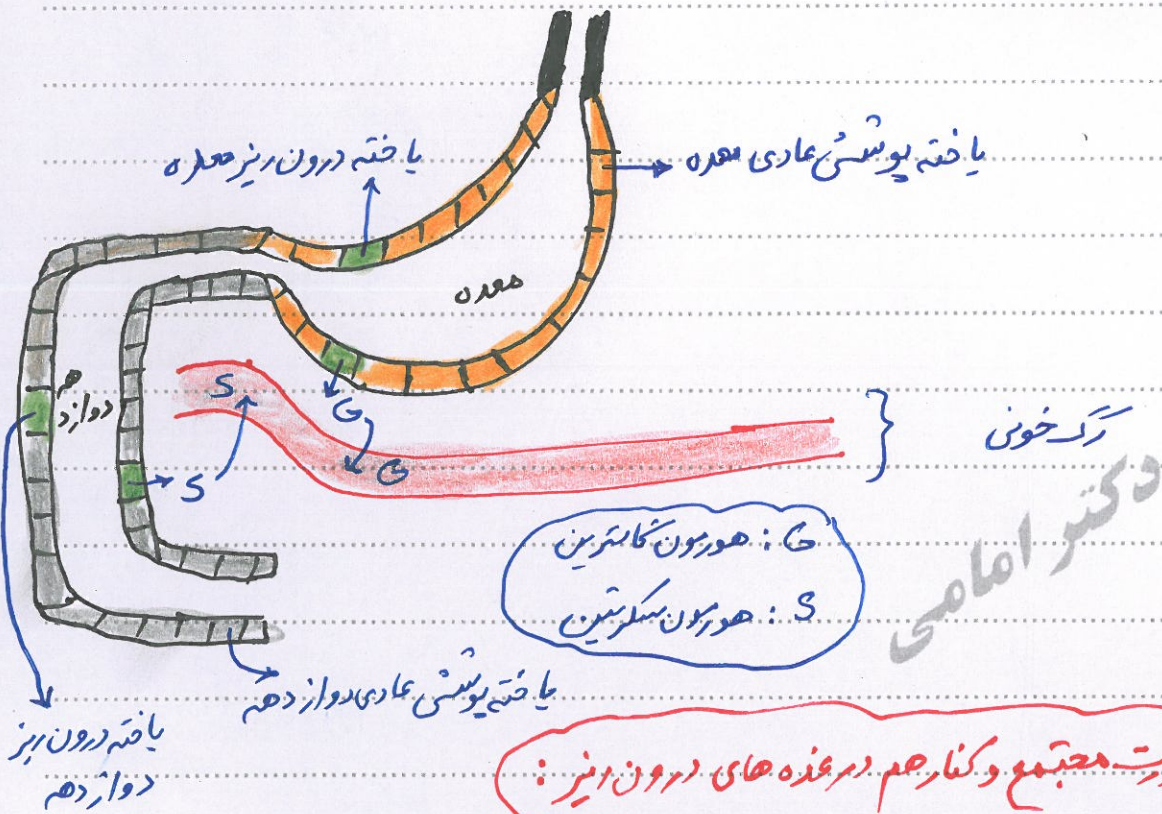 یاخته درون ریز معده
یاخته پوششی عادی معده
معده
دوازدهه
S
G
G
S
رگ خونی
G : هورمون گاسترین
S : هورمون سکرتین
دکتر امامی
یاخته پوششی عادی دوازدهه
یاخته درون ریز
دوازدهه
مجتمع و کنار هم در غده های درون ریز :